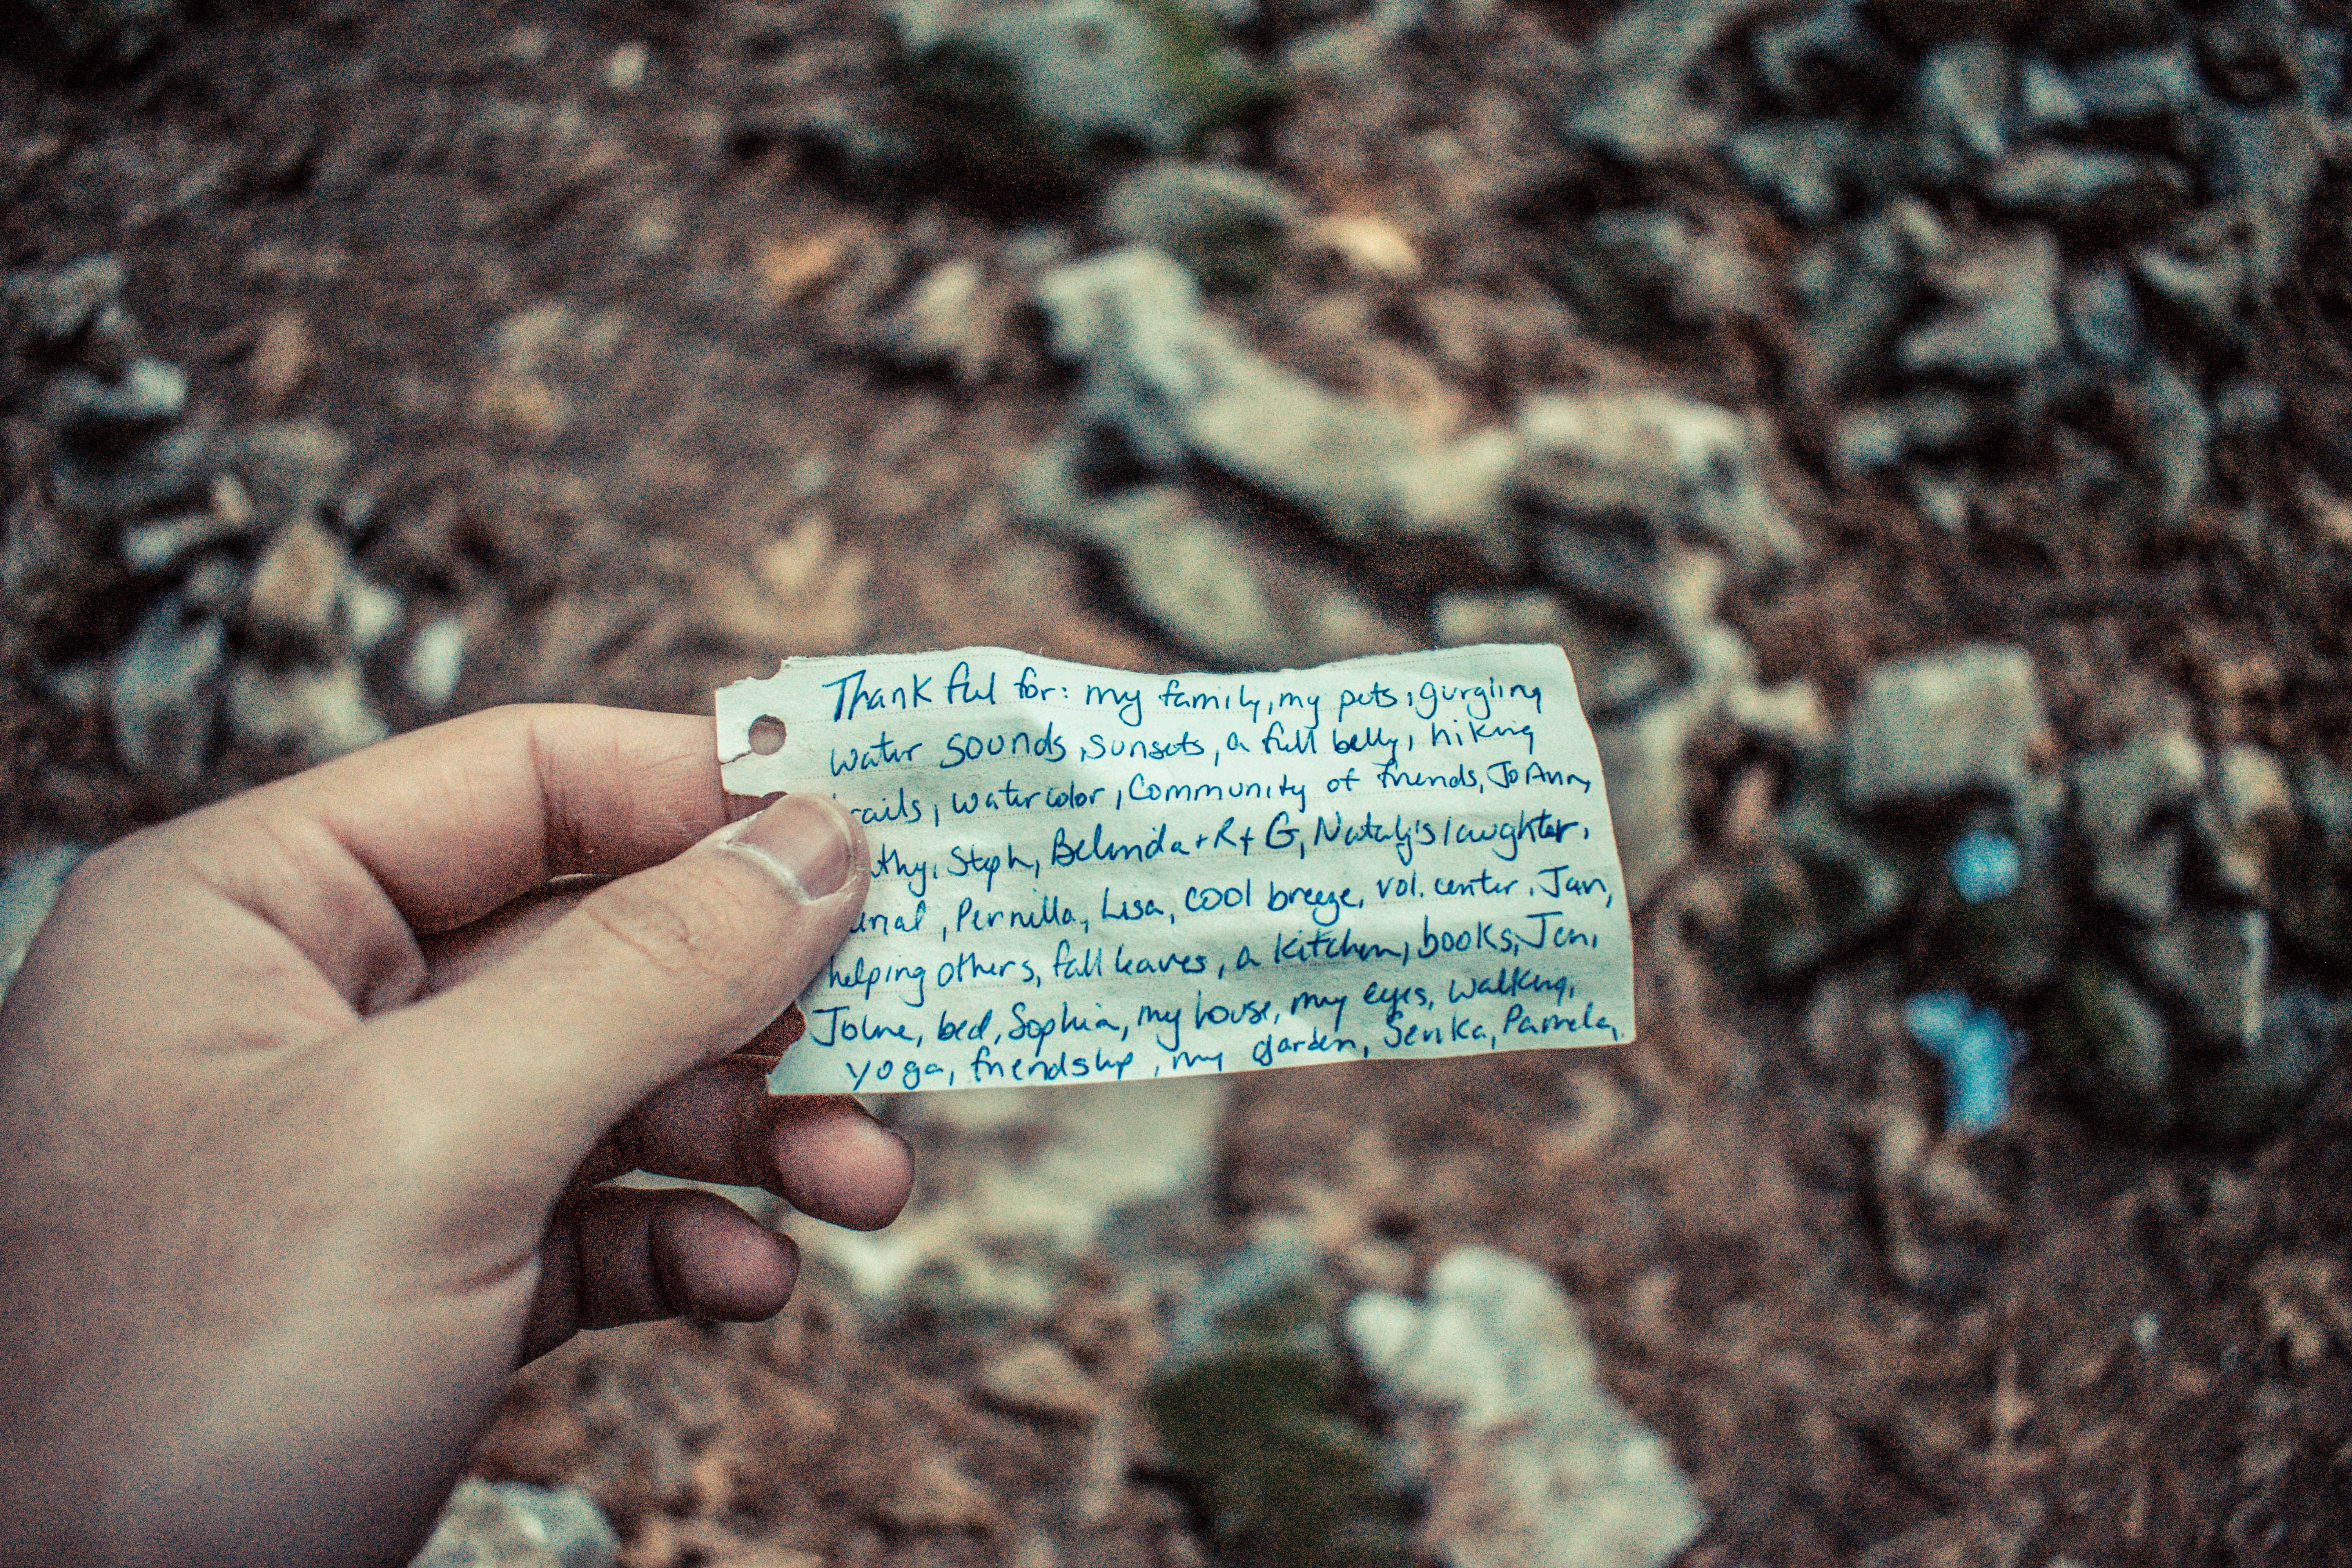 Thankful for: my family, my pets, gurgling
water sounds, sunsets, a full belly, hiking
rails, watercolor, Community of friends, JoAnn,
thy, Steph, Belinda + R + G, Nataly's laughter,
Pernilla, Lisa, cool breeze, vol. center, Jan,
helping others, fall leaves, a kitchen, books, Jen,
bed, Sophia, my house, my eyes, walking,
yoga, friendship, my garden, Senka, Pamela,